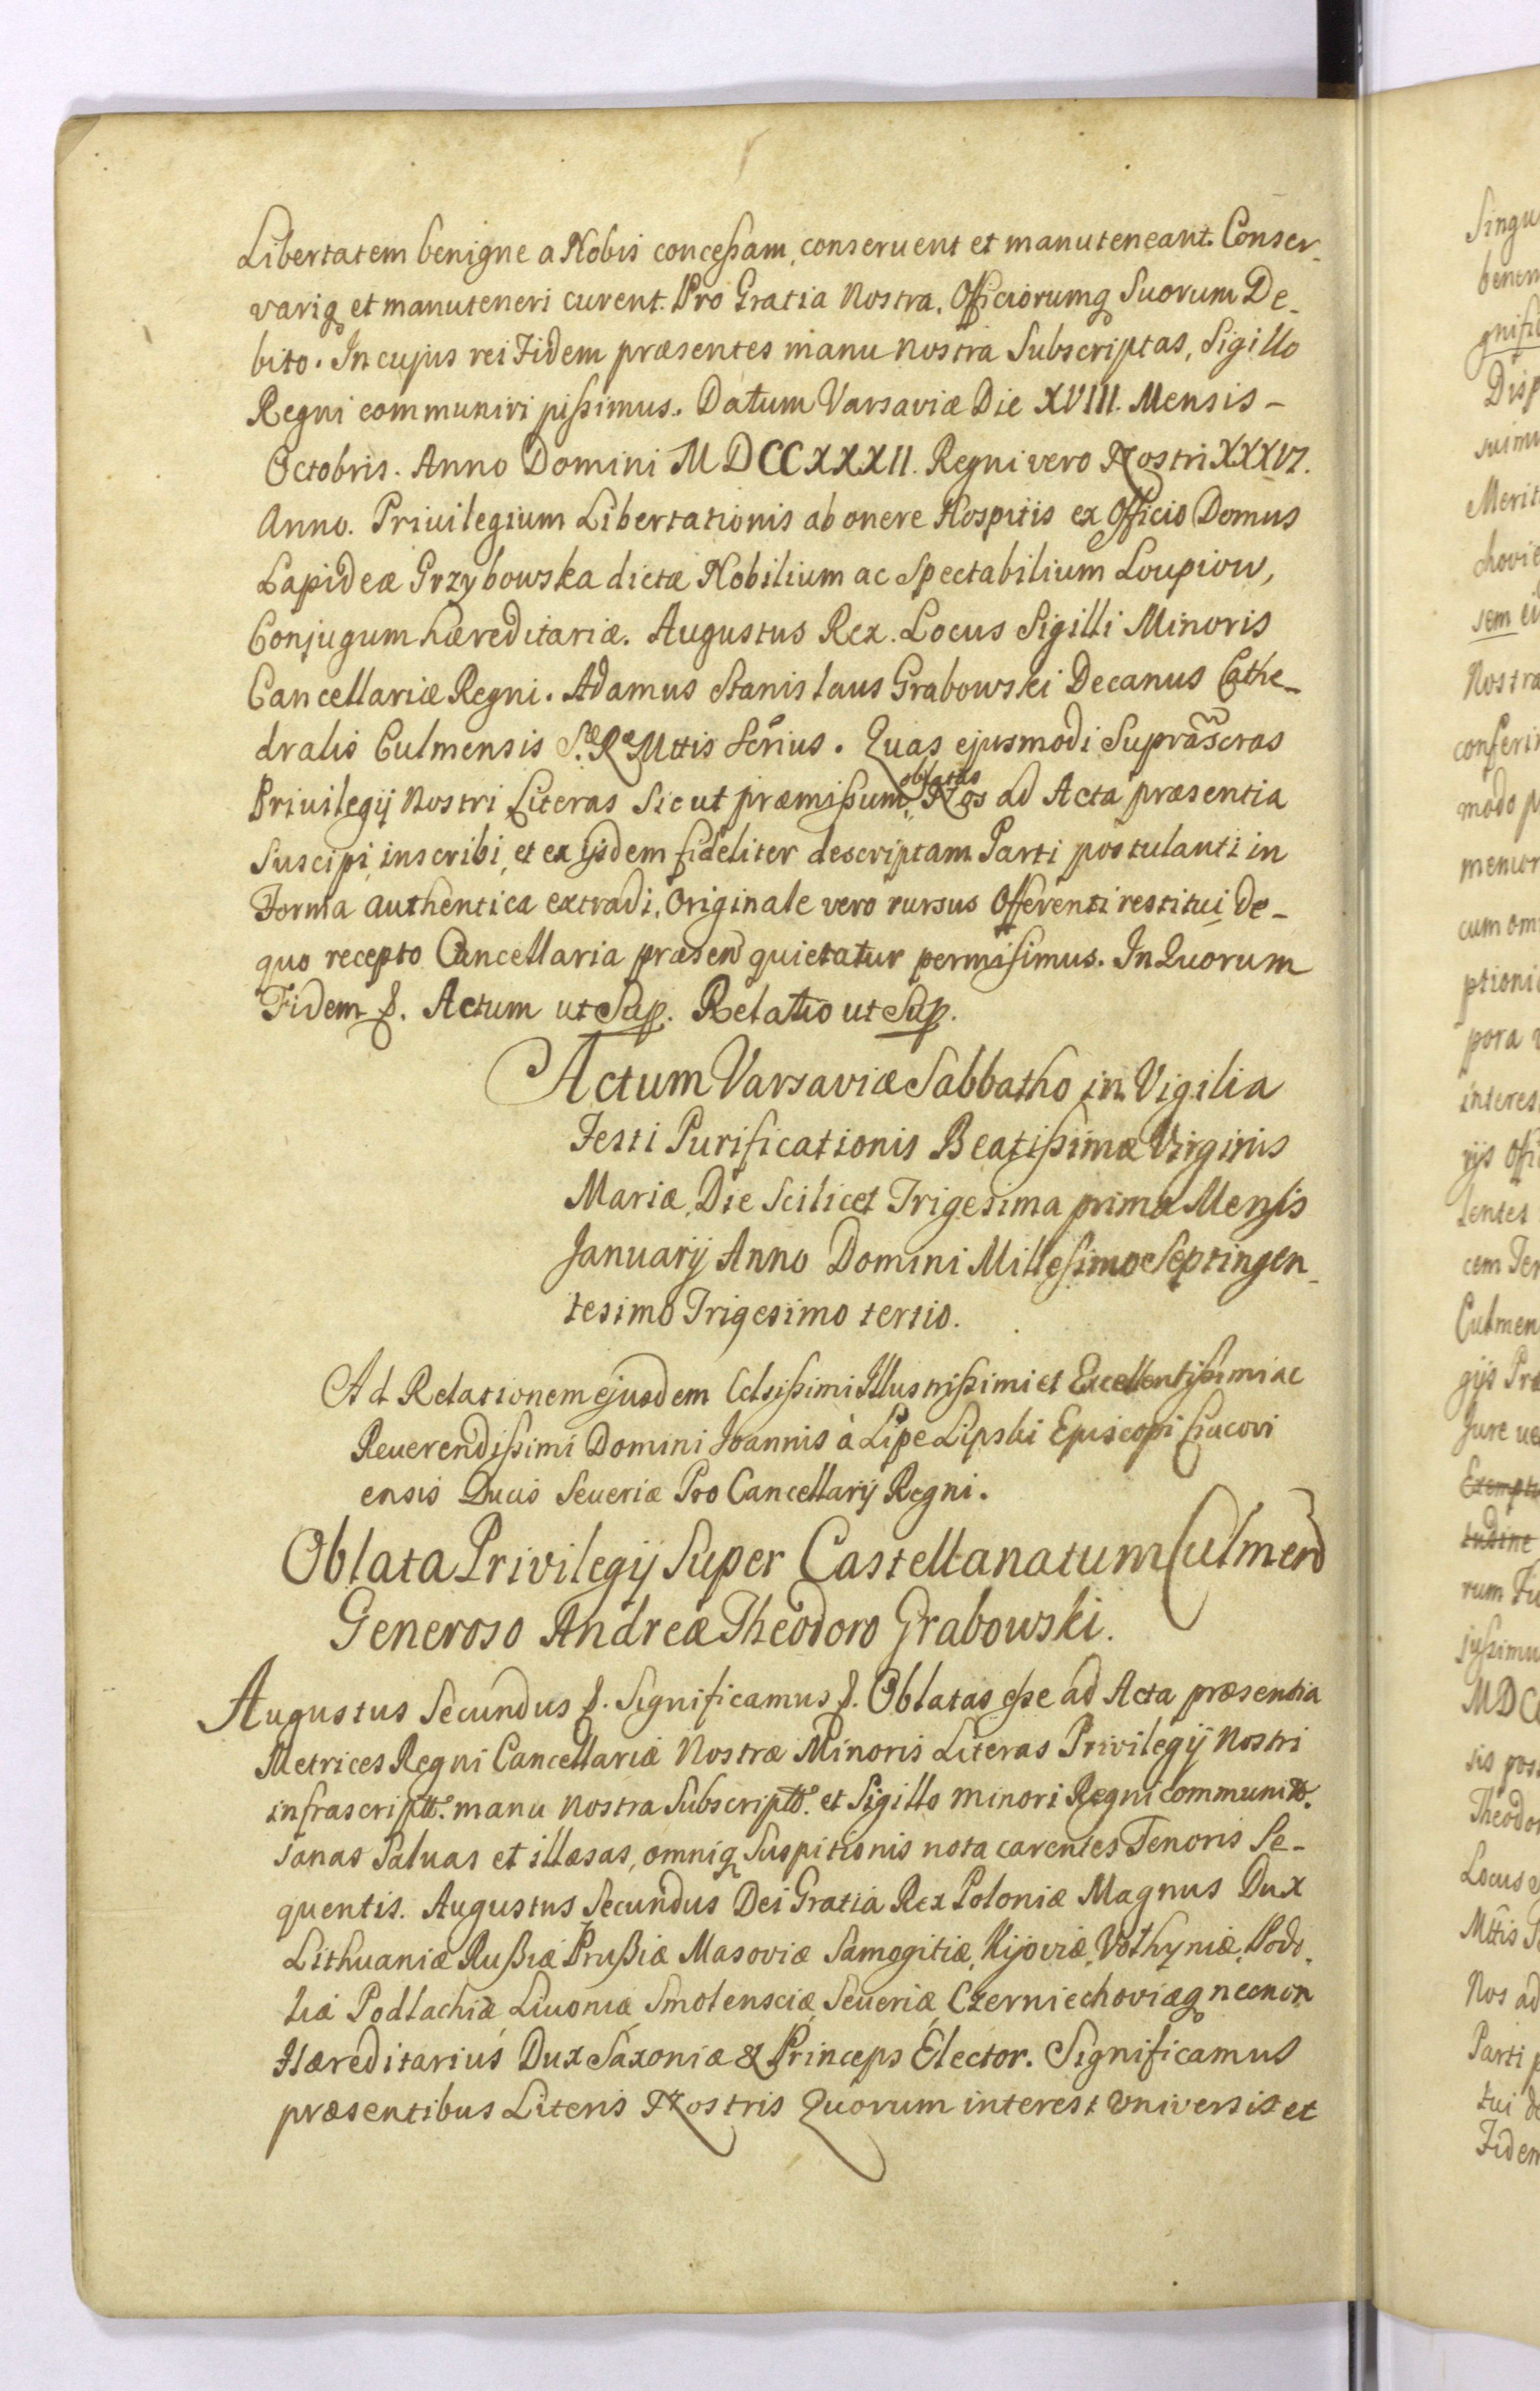 Libertatem benigne a Nobis concessam, conseruent et manuteneant. Conser-
variq et manuteneri curent. Pro Gratia Nostra, Officiorumq Suorum De-
bito. In cujus rei Fidem præsentes manu nostra Subscriptas, Sigillo
Regni communiri jussimus. Datum Varsaviæ Die XVIII. Mensis -
Octobris. Anno Domini MDCCXXXII. Regni vero Nostri XXXVI.
Anno. Privilegium Libertationis ab onere Hospitis ex Officio Domus
Lapideæ Grzybowska dictæ Nobilium ac Spectabilium Loupiow,
Conjugum hæreditariæ. Augustus Rex. Locus Sigilli Minoris
Cancellariæ Regni. Adamus Stanislaus Grabowski Decanus Cathe-
dralis Culmensis S. Ræ Mttis Scrius. Quas ejusmodi Suprascras
Privilegij Nostri Literas Sicut præmissum, oblatas Nos ad Acta præsentia
Suscipi, inscribi, et ex ijsdem fideliter descriptam Parti postulanti in
Forma authentica extradi, Originale vero rursus Offerenti restitui de-
quo recepto Cancellaria præsen quietatur permisimus. In Quorum
Fidem &. Actum ut Sup. Relatio ut Sup.
Actum Varsaviæ Sabbatho in Vigilia
Festi Purificationis Beatissimæ Virginis
Mariæ, Die Scilicet Trigesima prima Mensis
Januarij Anno Domini Millesimo Septingen-
tesimo Trigesimo tertio.
Ad Relationem ejusdem Celsissimi Illustrissimi et Excellentissimi ac
Reuerendissimi Domini Joannis à Lipe Lipski Episcopi Cracovi
ensis Ducis Seueriæ Pro Cancellarij Regni.
Oblata Privilegij Super Castellanatum Culmen
Generoso Andreæ Theodoro Grabowski.
Augustus Secundus &. Significamus &. Oblatas esse ad Acta præsentia
Metrices Regni Cancellariæ Nostræ Minoris Literas Privilegij Nostri
infrascriptt. manu nostra Subscriptt. et Sigillo minori Regni communitt.
sanas Saluas et illæsas, omniq Suspitionis nota carentes Tenoris Se-
quentis. Augustus Secundus Dei Gratia Rex Poloniæ Magnus Dux
Lithuaniæ Russiæ Prussiæ Masoviæ Samogitiæ, Kijoviæ, Volhyniæ, Podo-
liæ Podlachiæ Livoniæ Smolensciæ Seueriæ Czerniechoviæq necnon
Hæreditarius Dux Saxoniæ & Princeps Elector. Significamus
præsentibus Literis Nostris Quorum interest Vniversis et